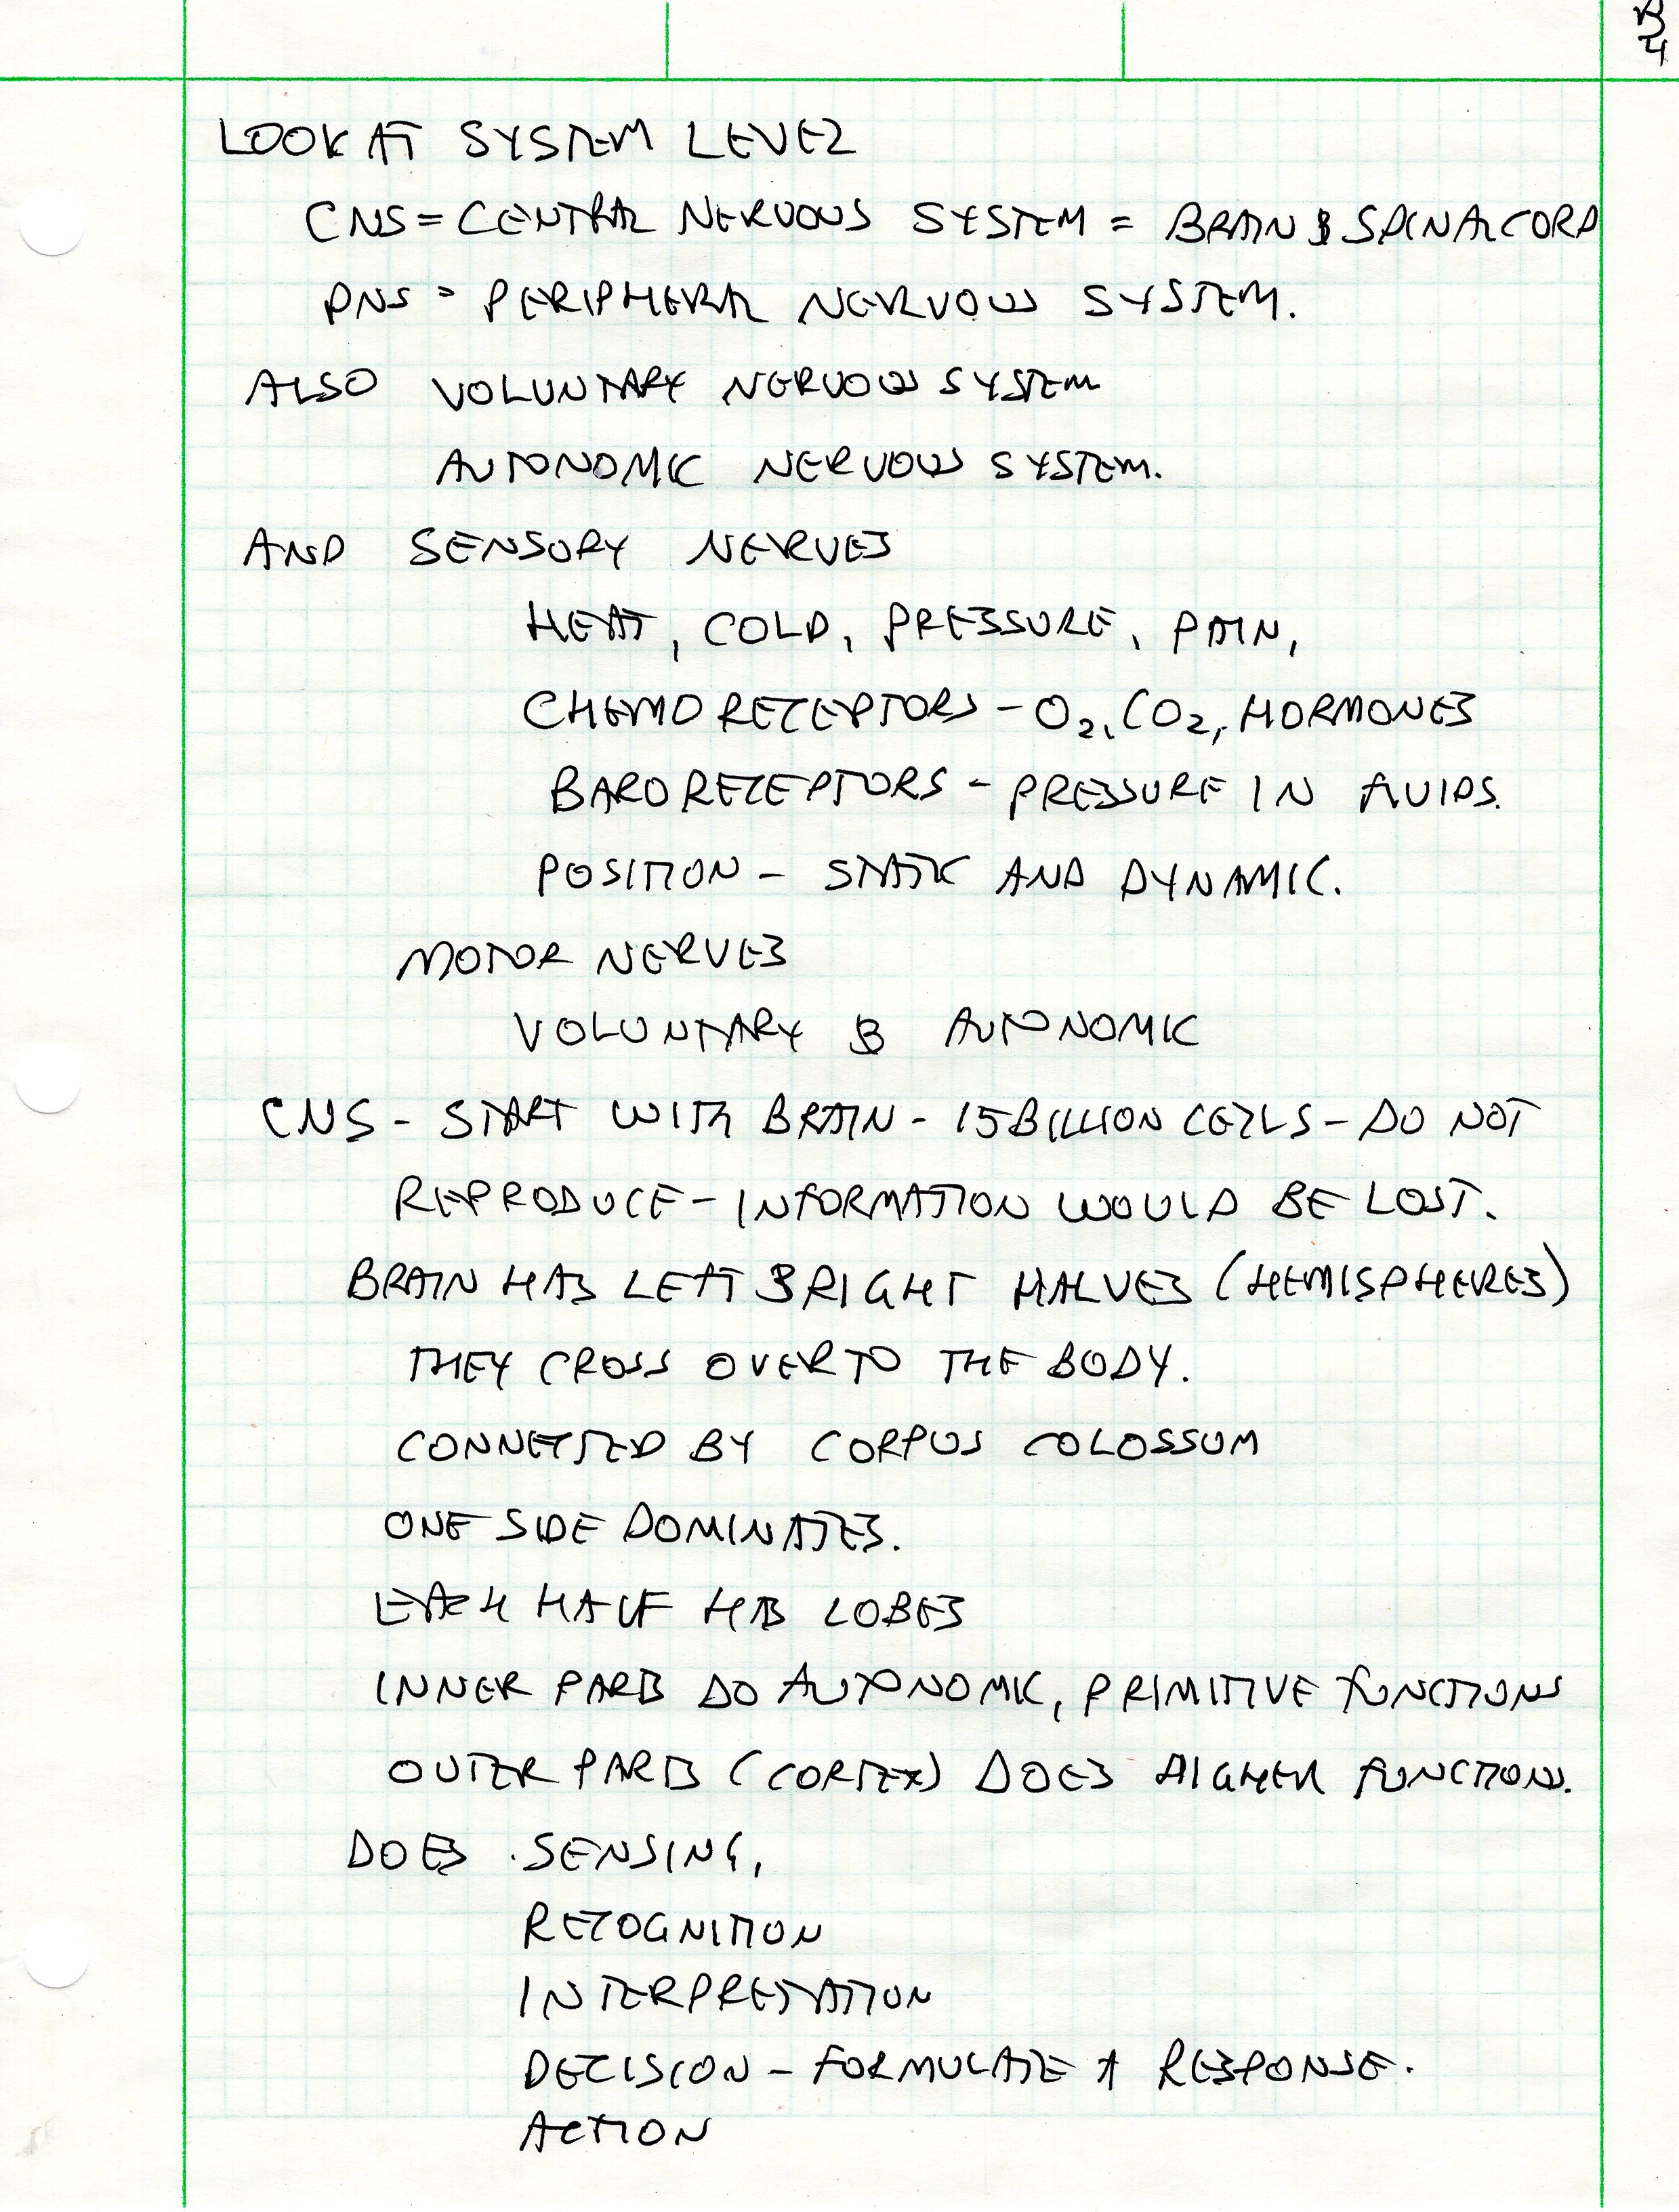 LOOK AT SYSTEM LEVEL
CNS = CENTRAL NERVOUS SYSTEM = BRAIN & SPINAL CORD
PNS = PERIPHERAL NERVOUS SYSTEM.
ALSO VOLUNTARY NERVOUS SYSTEM
AUTONOMIC NERVOUS SYSTEM.
AND SENSORY NERVES
HEAT, COLD, PRESSURE, PAIN,
CHEMORECEPTORS - O₂, CO₂, HORMONES
BARORECEPTORS - PRESSURE IN FLUIDS.
POSITION - STATIC AND DYNAMIC.
MOTOR NERVES
VOLUNTARY & AUTONOMIC
CNS - START WITH BRAIN - 15 BILLION CELLS - DO NOT
REPRODUCE - INFORMATION WOULD BE LOST.
BRAIN HAS LEFT & RIGHT HALVES (HEMISPHERES)
THEY CROSS OVER TO THE BODY.
CONNECTED BY CORPUS COLOSSUM
ONE SIDE DOMINATES.
EACH HALF HAS LOBES
INNER PARTS DO AUTONOMIC, PRIMITIVE FUNCTIONS
OUTER PARTS (CORTEX) DOES HIGHER FUNCTIONS.
DOES SENSING,
RECOGNITION
INTERPRETATION
DECISION - FORMULATE A RESPONSE.
ACTION